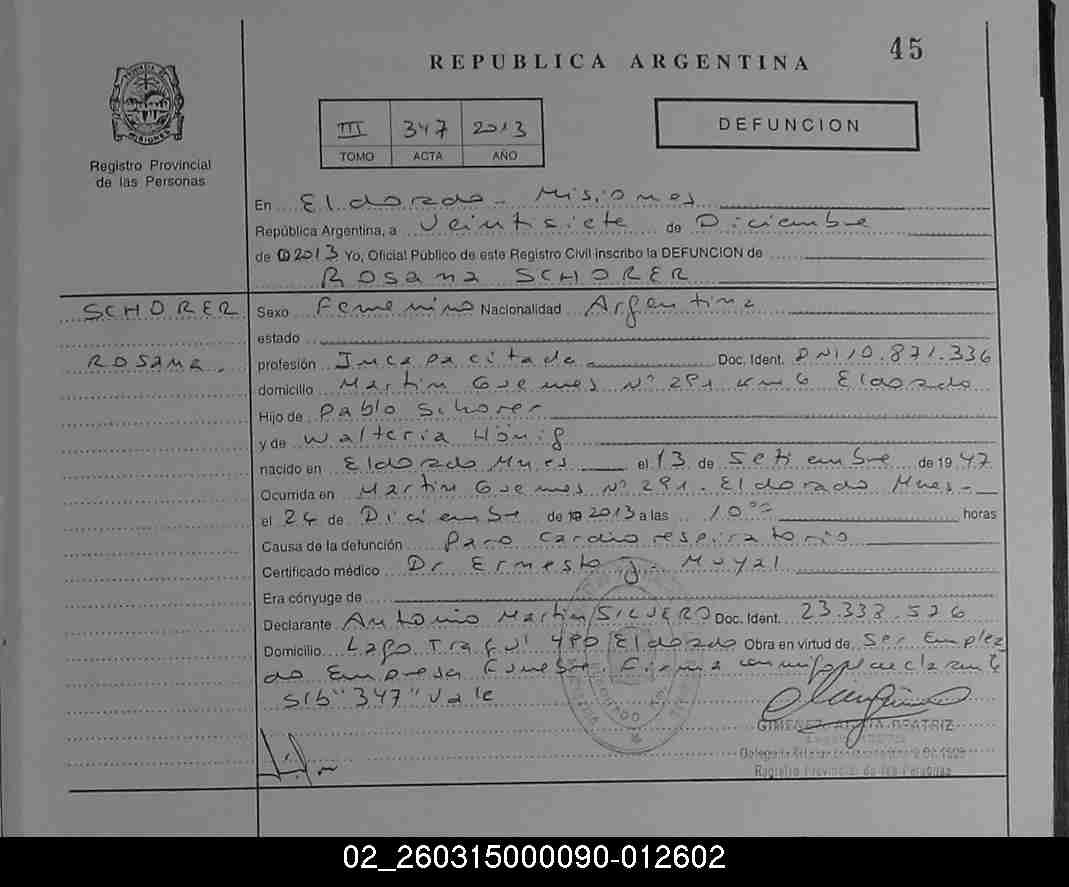 45
REPUBLICA ARGENTINA
III 347 2013
TOMO ACTA AÑO
DEFUNCION
Registro Provincial
de las Personas
En Eldorado - Misiones
República Argentina, a Veintisiete de Diciembre
de 2013 Yo, Oficial Público de este Registro Civil inscribo la DEFUNCION de
Rosana SCHORER
SCHORER
ROSANA.
Sexo Femenino Nacionalidad Argentina
estado
profesión Incapacitada Doc. Ident. DNI 10.871.336
domicilio Martin Guemes Nº 291 Km 6 Eldorado
Hijo de Pablo Schorer
y de Walteria Hönig
nacido en Eldorado Mnes el 13 de Setiembre de 1947
Ocurrida en Martin Guemes Nº 291. Eldorado Mnes-
el 24 de Diciembre de 2013 a las 10 horas
Causa de la defunción Paro Cardiorespiratorio
Certificado médico Dr Ernesto J. Muyal
Era cónyuge de
Declarante Antonio Martin SILVERO Doc. Ident. 23.338.526
Domicilio Lago Traful 480 Eldorado Obra en virtud de Ser Emplea
do Empresa Funebre. Firma declarante
S/b "347" Vale
GIMENEZ BEATRIZ
Registro Provincial de las Personas
02_260315000090-012602